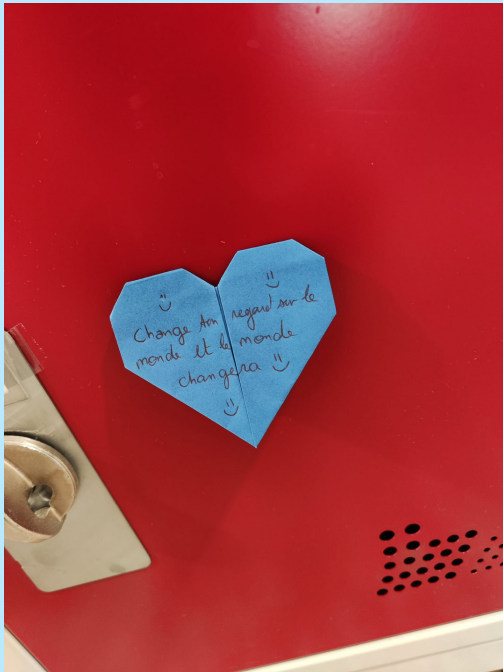 Change ton regard sur le
monde et le monde
changera